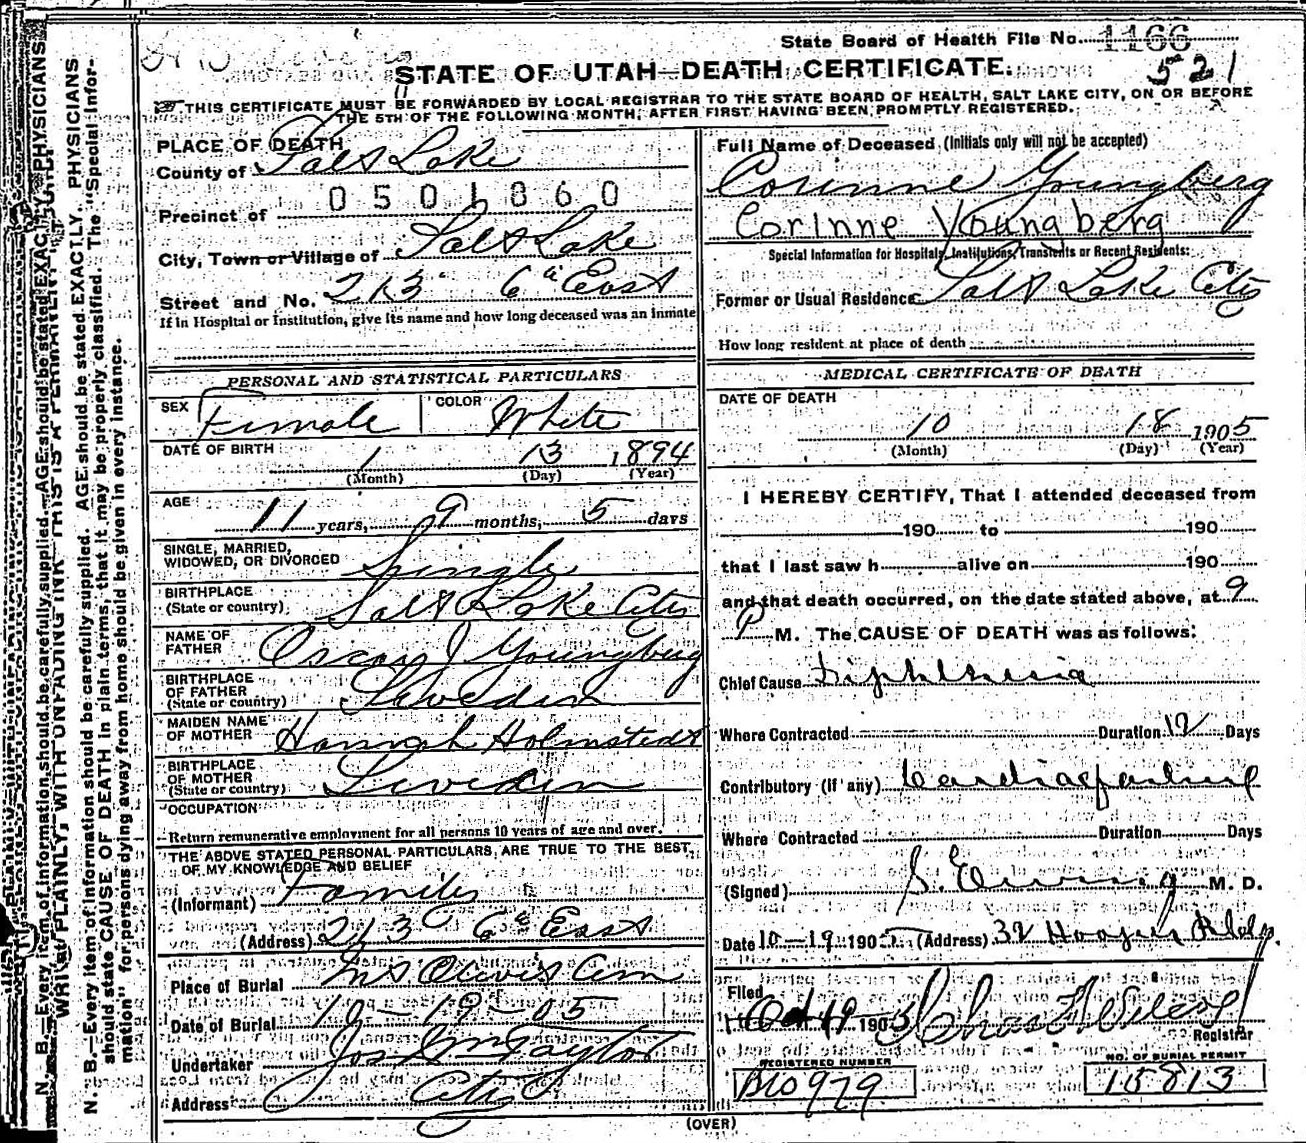 State Board of Health File No. 1166
521
STATE OF UTAH—DEATH CERTIFICATE.
THIS CERTIFICATE MUST BE FORWARDED BY LOCAL REGISTRAR TO THE STATE BOARD OF HEALTH, SALT LAKE CITY, ON OR BEFORE
THE 5TH OF THE FOLLOWING MONTH, AFTER FIRST HAVING BEEN PROMPTLY REGISTERED.
PLACE OF DEATH
County of Salt Lake
0501860
Precinct of
City, Town or Village of Salt Lake
Street and No. 213 6th East
If in Hospital or Institution, give its name and how long deceased was an inmate
Full Name of Deceased (Initials only will not be accepted)
Corinne Youngberg
Corinne Youngberg
Special Information for Hospitals, Institutions, Transients or Recent Residents:
Former or Usual Residence Salt Lake City
How long resident at place of death
PERSONAL AND STATISTICAL PARTICULARS
SEX Female COLOR White
DATE OF BIRTH 1 13 1894
(Month) (Day) (Year)
AGE 11 years, 9 months, 5 days
SINGLE, MARRIED,
WIDOWED, OR DIVORCED Single
BIRTHPLACE
(State or country) Salt Lake City
NAME OF
FATHER Oscar J Youngberg
BIRTHPLACE
OF FATHER
(State or country) Sweden
MAIDEN NAME
OF MOTHER Hannah Holmstedt
BIRTHPLACE
OF MOTHER
(State or country) Sweden
OCCUPATION
Return remunerative employment for all persons 10 years of age and over.
THE ABOVE STATED PERSONAL PARTICULARS ARE TRUE TO THE BEST
OF MY KNOWLEDGE AND BELIEF
(Informant) Family
(Address) 213 6th East
Place of Burial Mt. Olivet Cem
Date of Burial 10-19-05
Undertaker Jos Wm Taylor
Address City
MEDICAL CERTIFICATE OF DEATH
DATE OF DEATH
10 18 1905
(Month) (Day) (Year)
I HEREBY CERTIFY, That I attended deceased from
190 to 190
that I last saw h alive on 190
and that death occurred, on the date stated above, at 9
P M. The CAUSE OF DEATH was as follows:
Chief Cause Diphtheria
Where Contracted Duration 12 Days
Contributory (if any) Cardiac failure
Where Contracted Duration Days
(Signed) S. Ewing M. D.
Date 10-19 1905 (Address) 32 Hooper Bldg.
Filed
Oct 19 1905 Chas
Registrar
REGISTERED NUMBER
979
NO. OF BURIAL PERMIT
15813
(OVER)
N. B.—Every item of information should be carefully supplied. AGE should be stated EXACTLY. PHYSICIANS
WRITE PLAINLY, WITH UNFADING INK—THIS IS A PERMANENT
N. B.—Every item of information should be carefully supplied. AGE should be stated EXACTLY. PHYSICIANS
should state CAUSE OF DEATH in plain terms, that it may be properly classified. The "Special Infor-
mation" for persons dying away from home should be given in every instance.